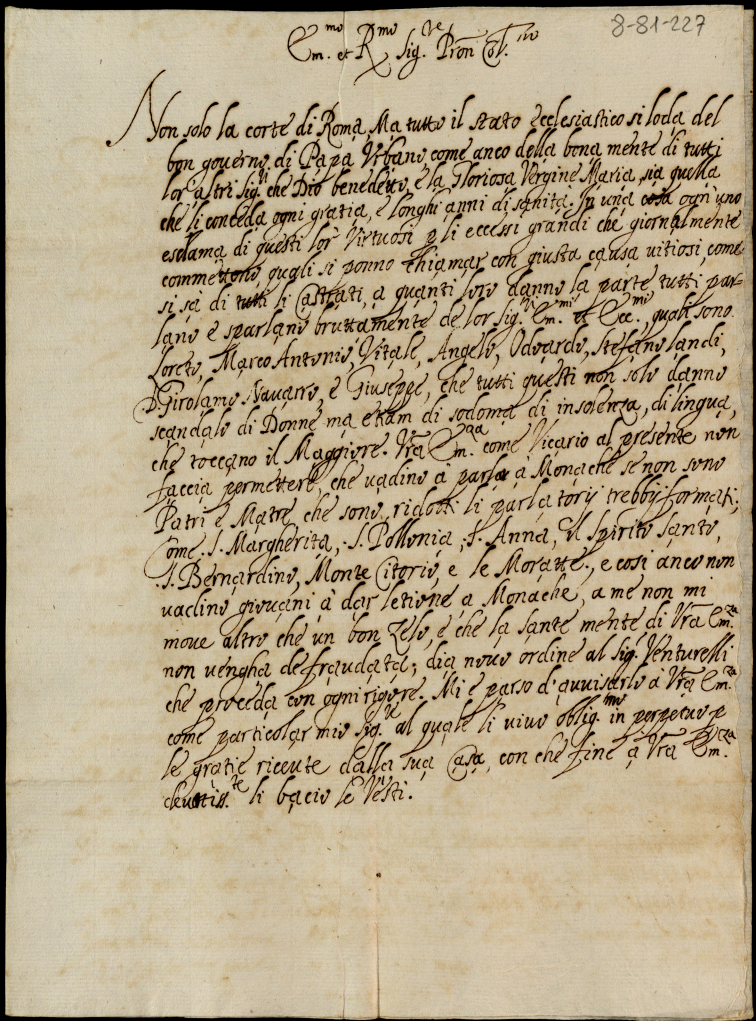 8-81-227
Em.mo et R.mo Sig.re Pron Col.mo
Non solo la corte di Roma, Ma tutto il stato ecclesiastico si loda del
bon governo di Papa Urbano come anco della bona mente di tutti
lor altri Sig.ri che Dio benedetto, e la Gloriosa Vergine Maria sia quella
che li conceda ogni gratia, e longhi anni di sanità. In una cosa ogn'uno
esclama di questi lor Virtuosi p li eccessi grandi che giornalmente
commettono, quali si ponno chiamar con giusta causa vitiosi, come
si sà di tutti li Castrati, a quanti loro danno la parte, tutti par-
lano e sparlano bruttamente de lor Sig.ri Em.mi et Ecc.mi, quali sono
Loreto, Marco Antonio, Vitale, Angelo, Odoardo, Stefano landi,
D. Girolamo Navarro, e Giuseppe, che tutti questi non solo danno
scandalo di Donne ma etiam di sodoma di insolenza, di lingua,
che toccano il Maggiore. Vra Em.za come Vicario al presente non
faccia permettere, che vadino à parlar à Monache se non sono
Patri e Matre, che sono ridotti li parlatorij trebbij formati;
Come .S. Margherita, .S. Pollonia, .S. Anna, il Spirito Santo,
.S. Bernardino, Monte Citorio, e le Moratte, e cosi anco non
vadino giovani à dar letione a Monache, a me non mi
move altro, che un bon Zelo, e che la sante mente di Vra Em.za
non vengha defraudata; dia novo ordine al Sig.r Venturelli
che proceda con ogni rigore. Mi è parso d'avvisarlo à Vra Em.za
come particolar mio Sig.re al quale li vivo oblig.mo in perpetuo p
le gratie ricevte dalla sua Casa, con che fine à Vra Em.za
devotiss.te li bacio le Vesti.